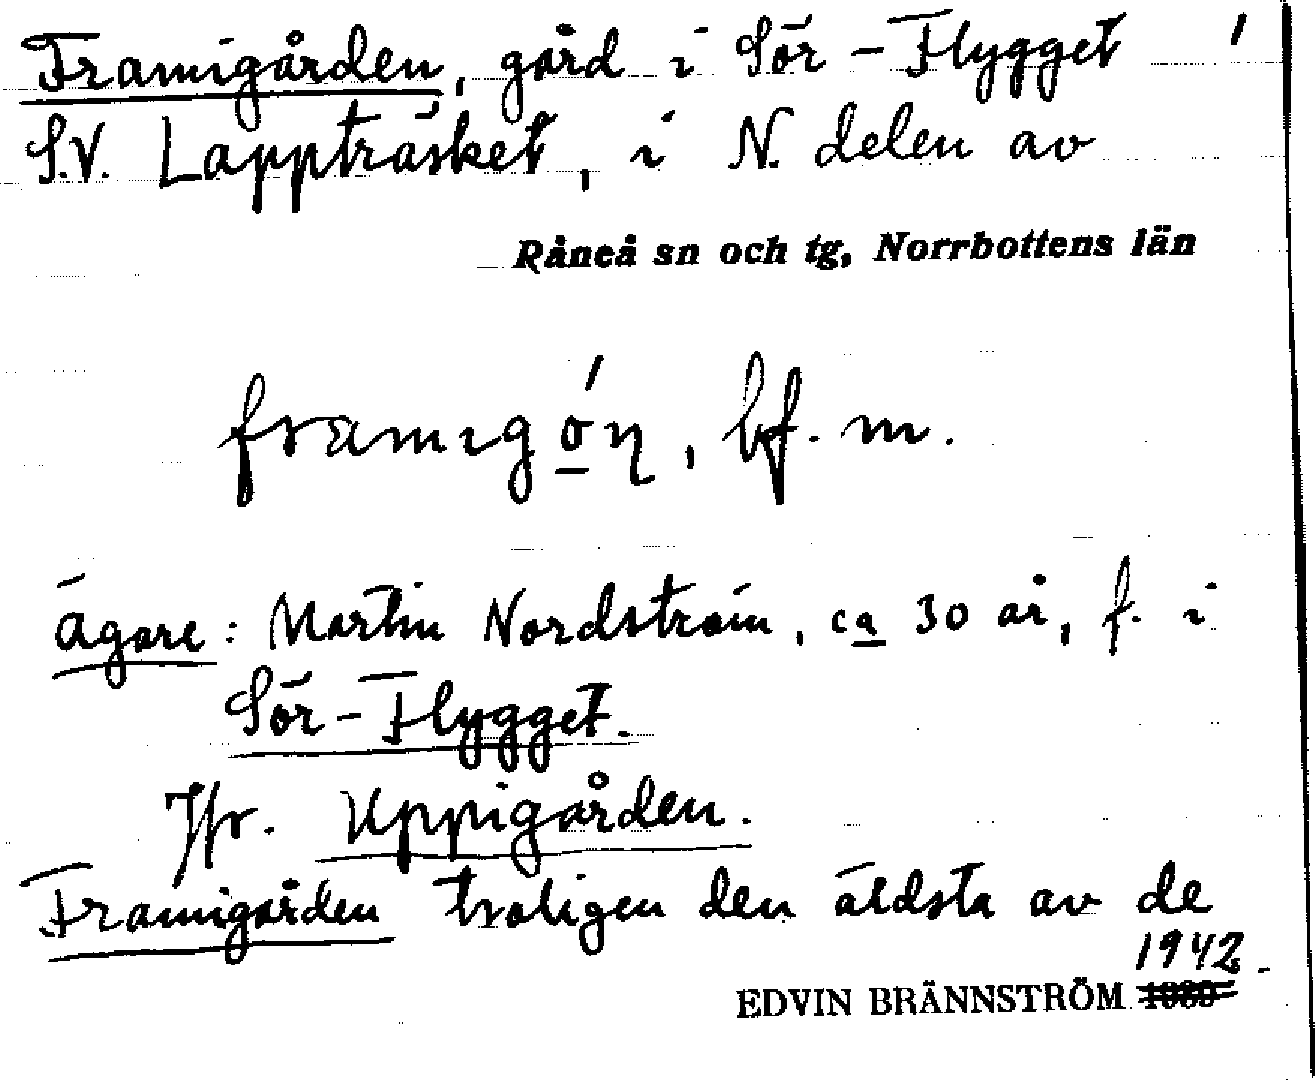 Framigården, gård i Sör-Flygget 1
S.V. Lappträsket, i N. delen av
Råneå sn och tg, Norrbottens län
framıgó̱n, bf. m.
ägare: Martin Nordström, ca 30 år, f. i
Sör-Flygget.
Jfr. Uppigården.
Framigården troligen den äldsta av de
1942.
EDVIN BRÄNNSTRÖM